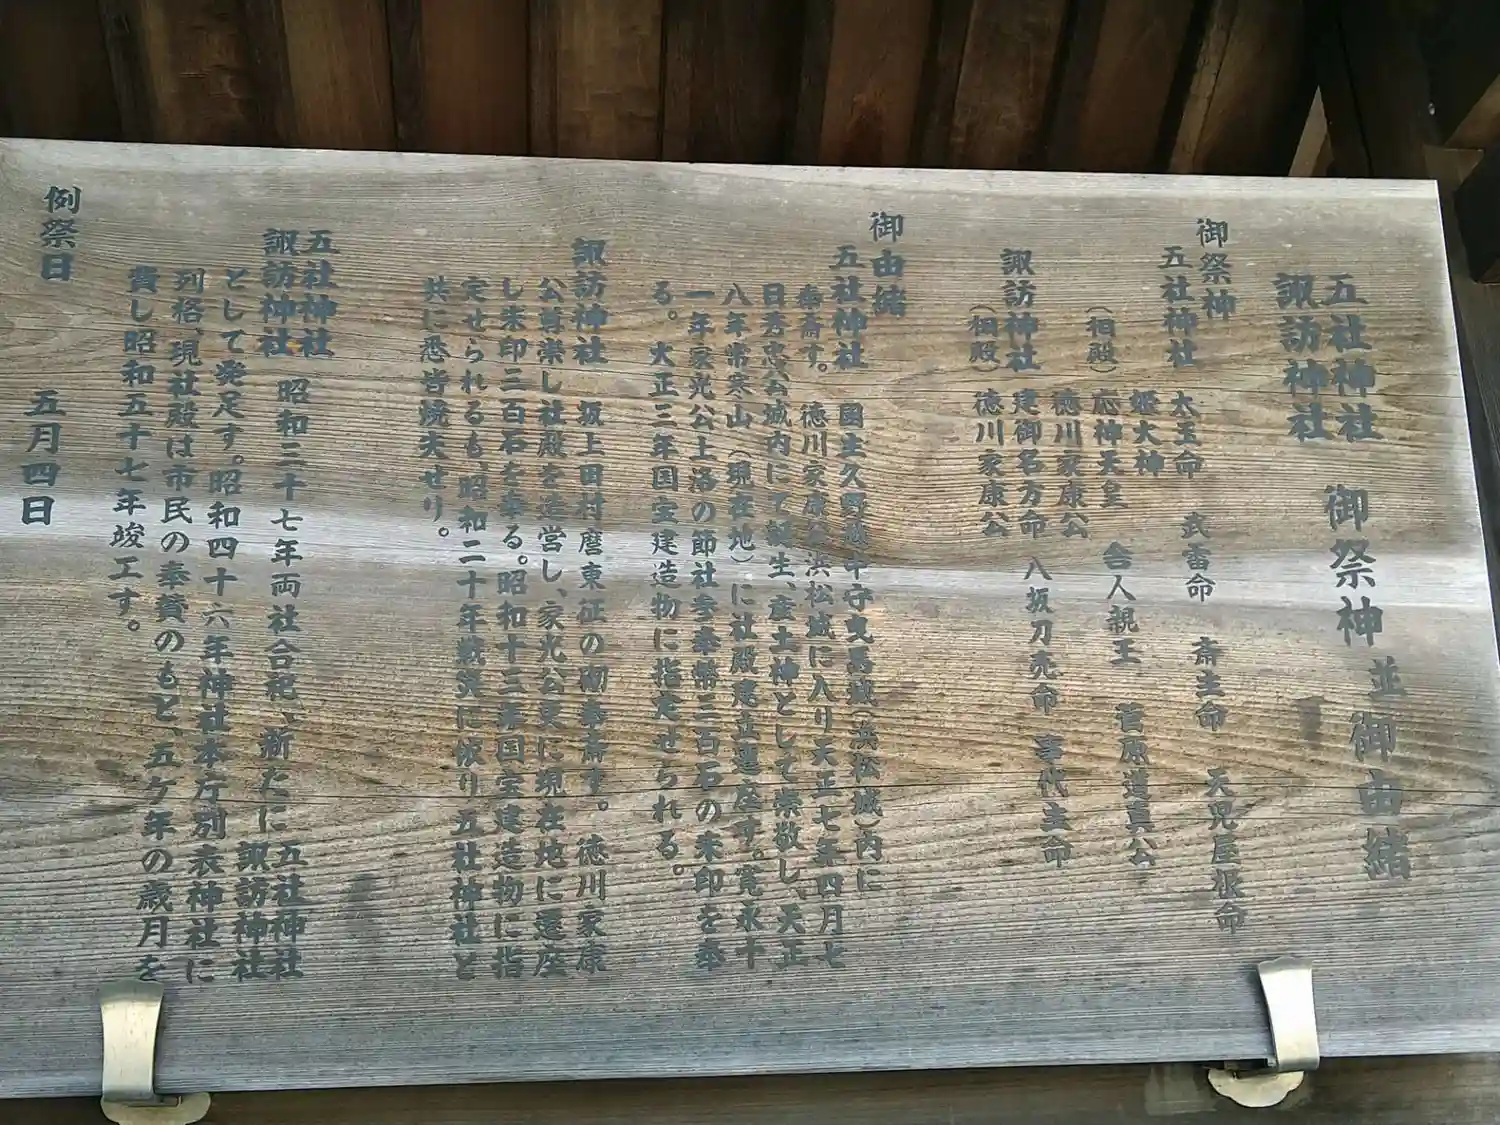 五社神社
諏訪神社 御祭神並御由緒
御祭神
五社神社 太玉命 武雷命 斎主命 天児屋根命
姫大神
(相殿) 応神天皇 舎人親王 菅原道真公
徳川家康公
諏訪神社 建御名方命 八坂刀売命 事代主命
(相殿) 徳川家康公
御由緒
五社神社 国主久野越中守曳馬城(浜松城)内に
奉斎す。徳川家康公浜松城に入り天正七年四月七
日秀忠公城内にて誕生、産土神として崇敬し、天正
八年常寒山(現在地)に社殿建立遷座す。寛永十
一年家光公上洛の節社参奉幣三百石の朱印を奉
る。大正三年国宝建造物に指定せられる。
諏訪神社 坂上田村麿東征の砌奉斎す。徳川家康
公尊崇し社殿を造営し、家光公更に現在地に遷座
し朱印三百石を奉る。昭和十三年国宝建造物に指
定せられるも、昭和二十年戦災に依り五社神社と
共に悉皆焼失せり。
五社神社
諏訪神社 昭和三十七年両社合祀、新たに五社神社
諏訪神社
として発足す。昭和四十六年神社本庁別表神社に
列格、現社殿は市民の奉賛のもと、五ケ年の歳月を
費し昭和五十七年竣工す。
例祭日 五月四日